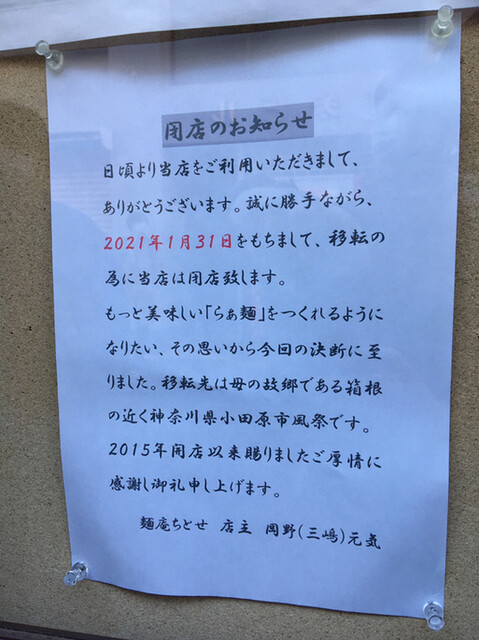 閉店のお知らせ
日頃より当店をご利用いただきまして、
ありがとうございます。誠に勝手ながら、
2021年1月31日をもちまして、移転の
為に当店は閉店致します。
もっと美味しい「らぁ麺」をつくれるように
なりたい、その思いから今回の決断に至
りました。移転先は母の故郷である箱根
の近く神奈川県小田原市風祭です。
2015年開店以来賜りましたご厚情に
感謝し御礼申し上げます。
麺庵ちとせ 店主 岡野(三嶋)元気